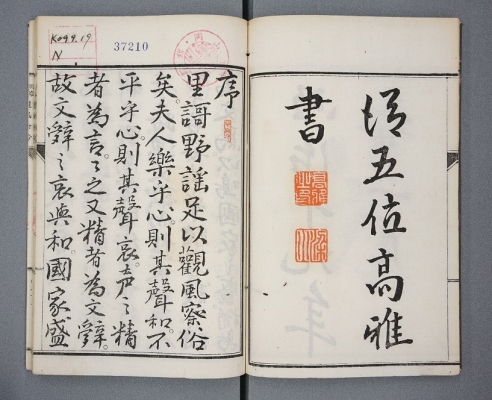 從五位高雅
書
K099.19
N
37210
序
里謌野謡足以觀風察俗
矣。夫人樂乎心則其聲和。不
平乎心。則其聲哀。声之精
者為言。〻之又精者為文辭。
故文辭之哀與和。國家盛